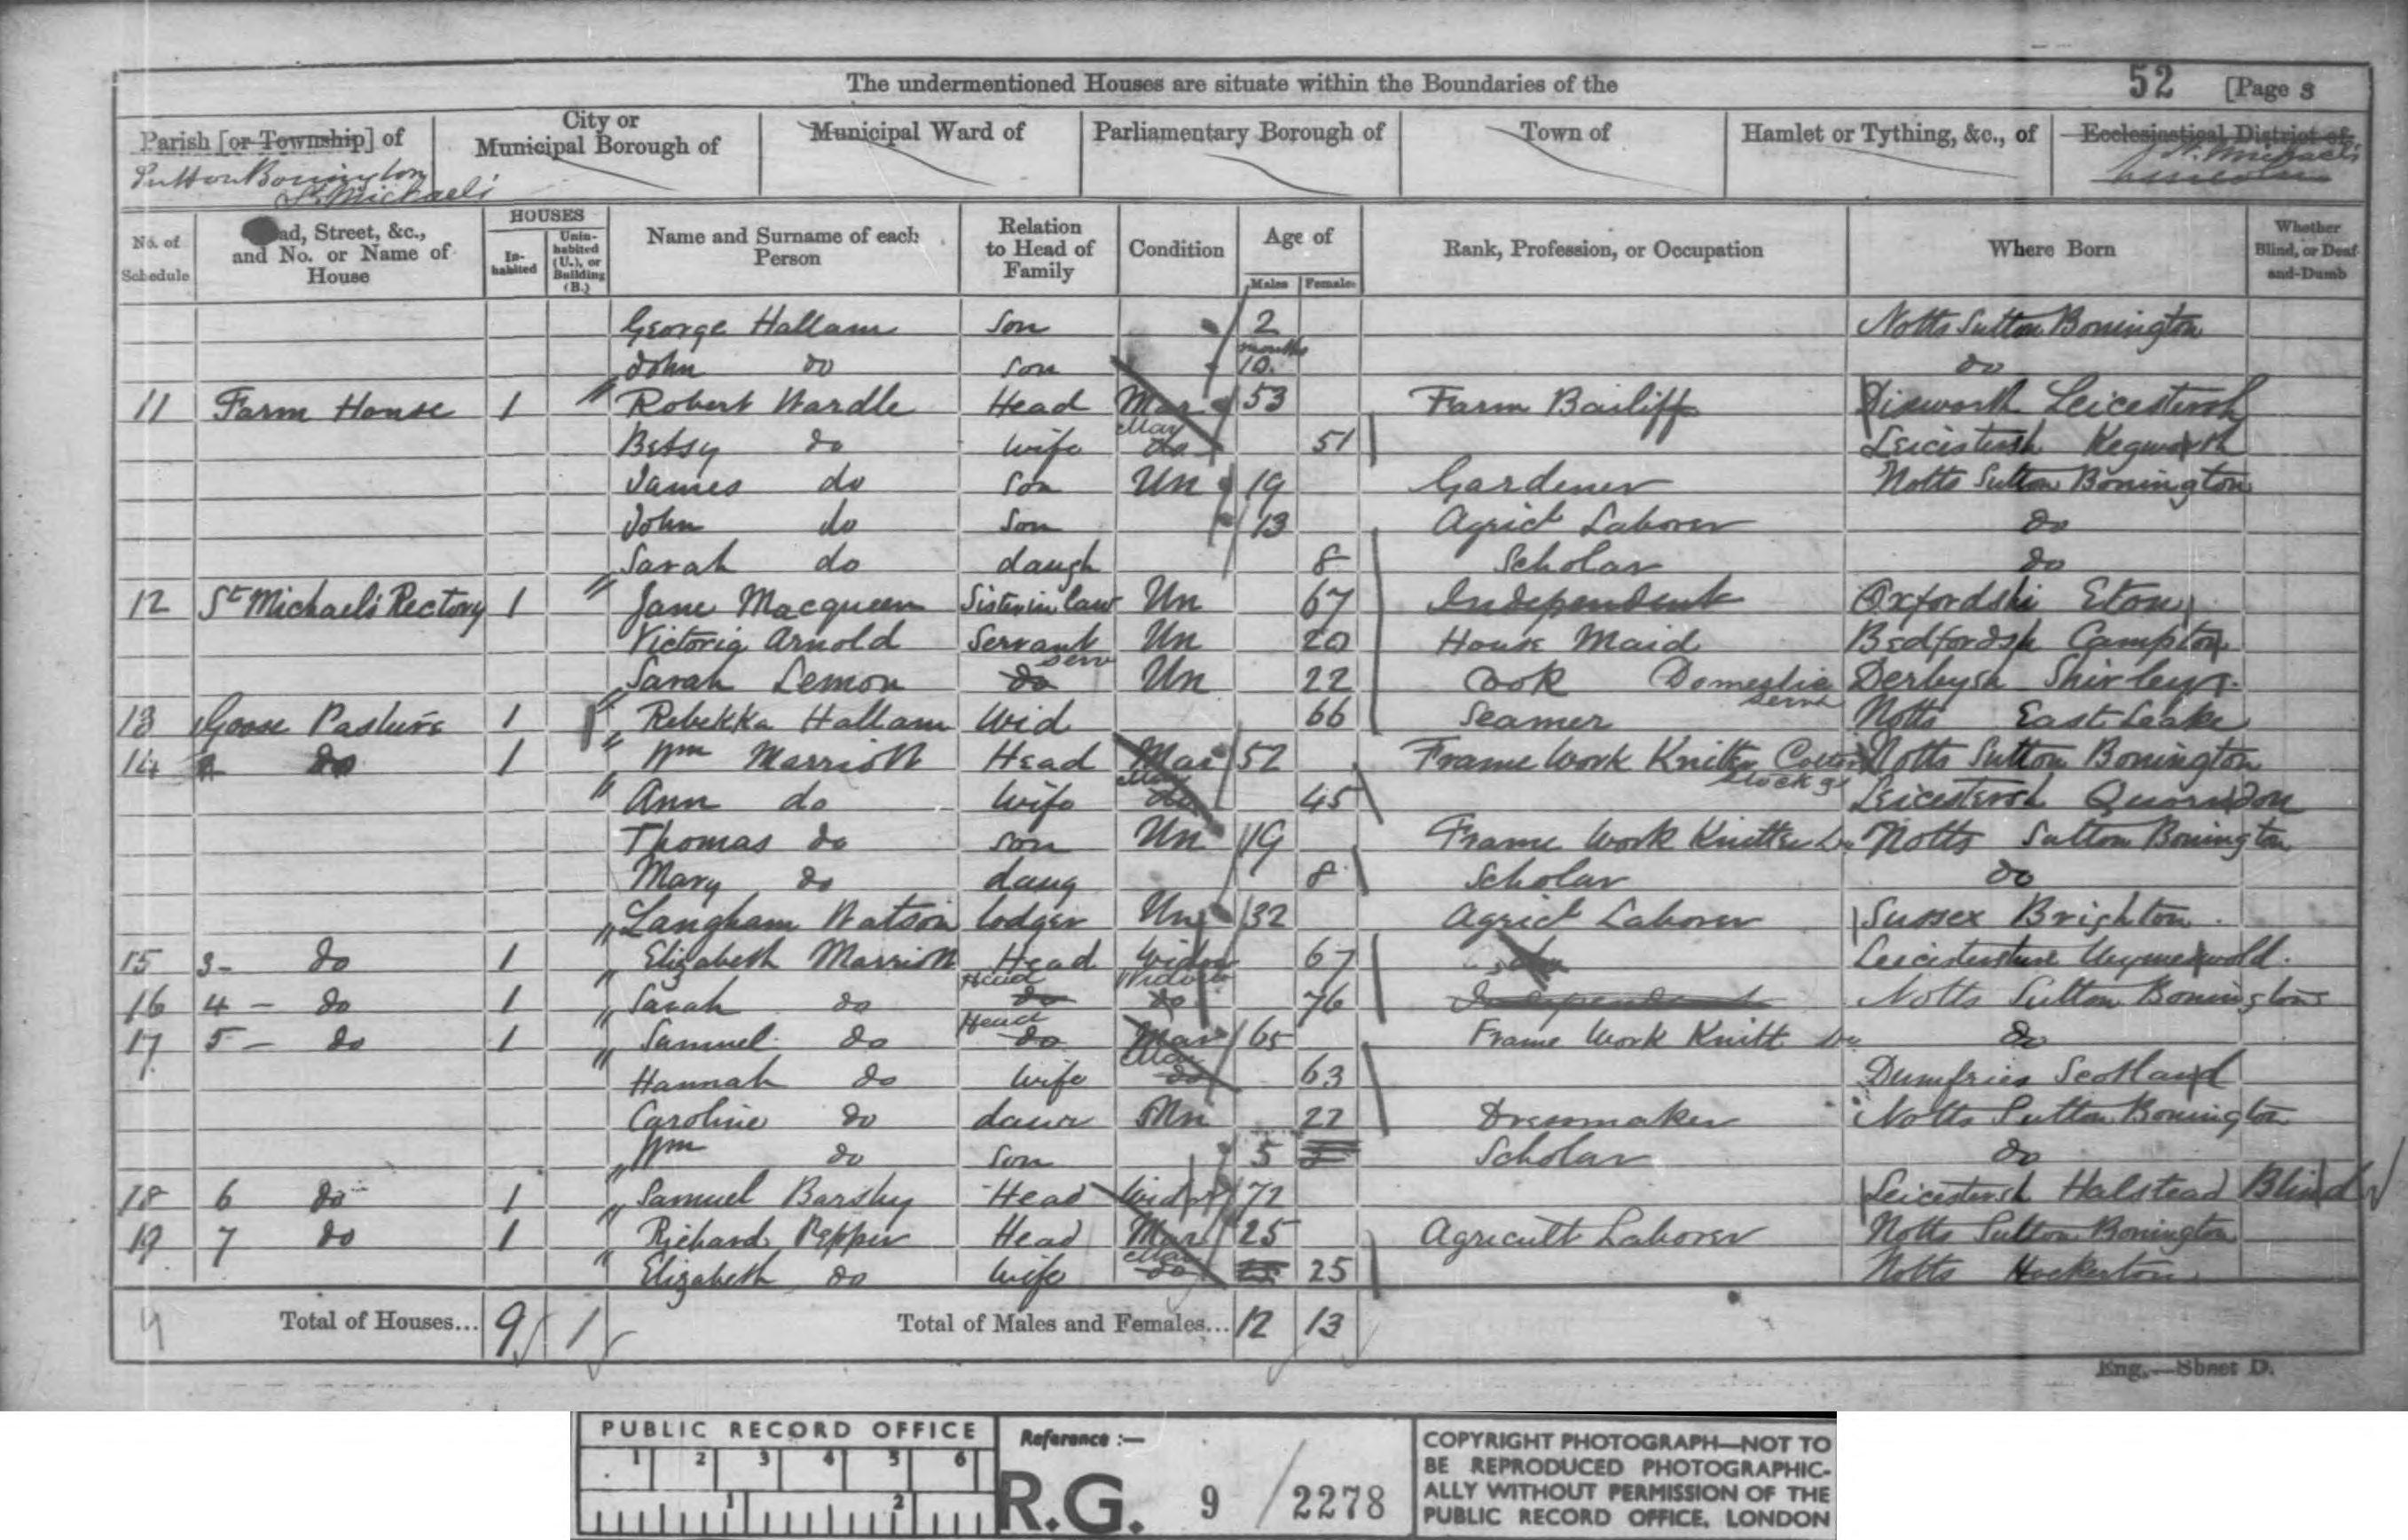 The undermentioned Houses are situate within the Boundaries of the 52 [Page 8
Parish [or Township] of City or Municipal Borough of Municipal Ward of Parliamentary Borough of Town of Hamlet or Tything, &c., of Ecclesiastical District of
Sutton Bonington St. Michaels St. Michaels
No. of Schedule ad, Street, &c., and No. or Name of House HOUSES In-habited Unin-habited (U.), or Building (B.) Name and Surname of each Person Relation to Head of Family Condition Age of Males Females Rank, Profession, or Occupation Where Born Whether Blind, or Deaf-and-Dumb
George Hallam Son 2 Notts Sutton Bonington
John do Son months 10 do
11 Farm House 1 Robert Wardle Head Mar 53 Farm Bailiff Disworth Leicestersh
Betsy do Wife Mar do 51 Leicestersh Kegworth
James do Son Un 19 Gardener Notts Sutton Bonington
John do Son 13 Agricl Laborer do
Sarah do daugh 8 Scholar do
12 St Michaels Rectory 1 Jane Macqueen Sister in law Un 67 Independent Oxfordshi Eton
Victoria Arnold Servant Un 20 House Maid Bedfordsh Campton
Sarah Lemon do serv Un 22 Cook Domestic Serv Derbysh Shirley
13 Goose Pasture 1 Rebekka Hallam Wid 66 Seamer Notts East Leake
14 do 1 Wm Marriott Head Mar 52 Frame Work Knitter Cotton Stockg Notts Sutton Bonington
Ann do Wife Mar do 45 Leicestersh Quorndon
Thomas do Son Un 19 Frame Work Knitter Do Notts Sutton Bonington
Mary do daug 8 Scholar do
Langham Watson lodger Un 32 Agricl Laborer Sussex Brighton
15 3- do 1 Elizabeth Marriott Head Widow 67 Leicestershire Wymeswold
16 4- do 1 Sarah do Head do Widow do 76 Independent Notts Sutton Bonington
17 5- do 1 Samuel do Head do Mar 65 Frame Work Knitt Do do
Hannah do Wife Mar do 63 Dumfries Scotland
Caroline do daur Un 22 Dressmaker Notts Sutton Bonington
Wm do Son 5 Scholar do
18 6 do 1 Samuel Barsby Head Widr 72 Leicestersh Halstead Blind
19 7 do 1 Richard Pepper Head Mar 25 Agricult Laborer Notts Sutton Bonington
Elizabeth do Wife Mar do 25 Notts Hockerton
9 Total of Houses... 9 1 Total of Males and Females... 12 13
Eng.—Sheet D.
PUBLIC RECORD OFFICE Reference :—
1 2 3 4 5 6
1 2
R.G. 9 / 2278
COPYRIGHT PHOTOGRAPH—NOT TO
BE REPRODUCED PHOTOGRAPHIC-
ALLY WITHOUT PERMISSION OF THE
PUBLIC RECORD OFFICE, LONDON